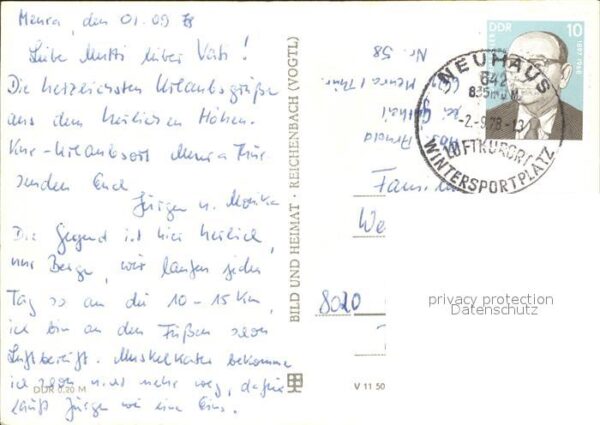 Meura, den 01.09 78
Liebe Mutti lieber Vati!
Die herzlichsten Urlaubsgrüße
aus dem herrlichen Höhen-
Kur-Urlaubsort Meura Thür
senden Euch
Jürgen u. Monika
Die Gegend ist hier herrlich,
nur Berge, wir laufen jeden
Tag so an die 10-15 Km,
ich bin an den Füßen schon
luftbereift. Muskelkater bekomme
ich schon nicht mehr weg, dafür
läuft Jürgen wie eine Eins.
DDR 0,20 M
BILD UND HEIMAT · REICHENBACH (VOGTL)
V 11 50
DDR
10
NEUHAUS
642
835m ü.M.
-2.-9.78-13
LUFTKURORT
WINTERSPORTPLATZ
Arnold
Meura / Thür.
Nr. 58
Famil
We
8020
privacy protection
Datenschutz